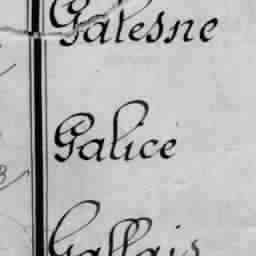 Galesne
Galice
Gallais